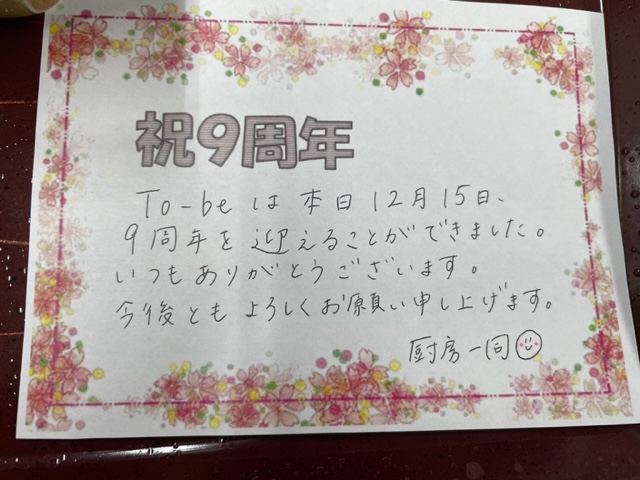 祝9周年
To-beは本日12月15日、
9周年を迎えることができました。
いつもありがとうございます。
今後ともよろしくお願い申し上げます。
厨房一同